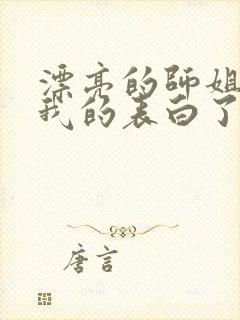 漂亮的师姐
我的表白了
唐言